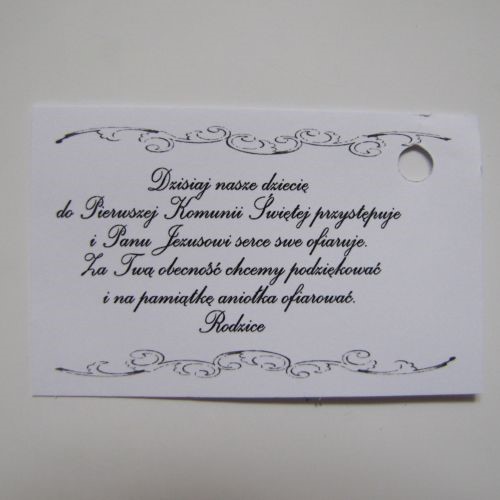 Dzisiaj nasze dziecię
do Pierwszej Komunii Świętej przystępuje
i Panu Jezusowi serce swe ofiaruje.
Za Twą obecność chcemy podziękować
i na pamiątkę aniołka ofiarować.
Rodzice